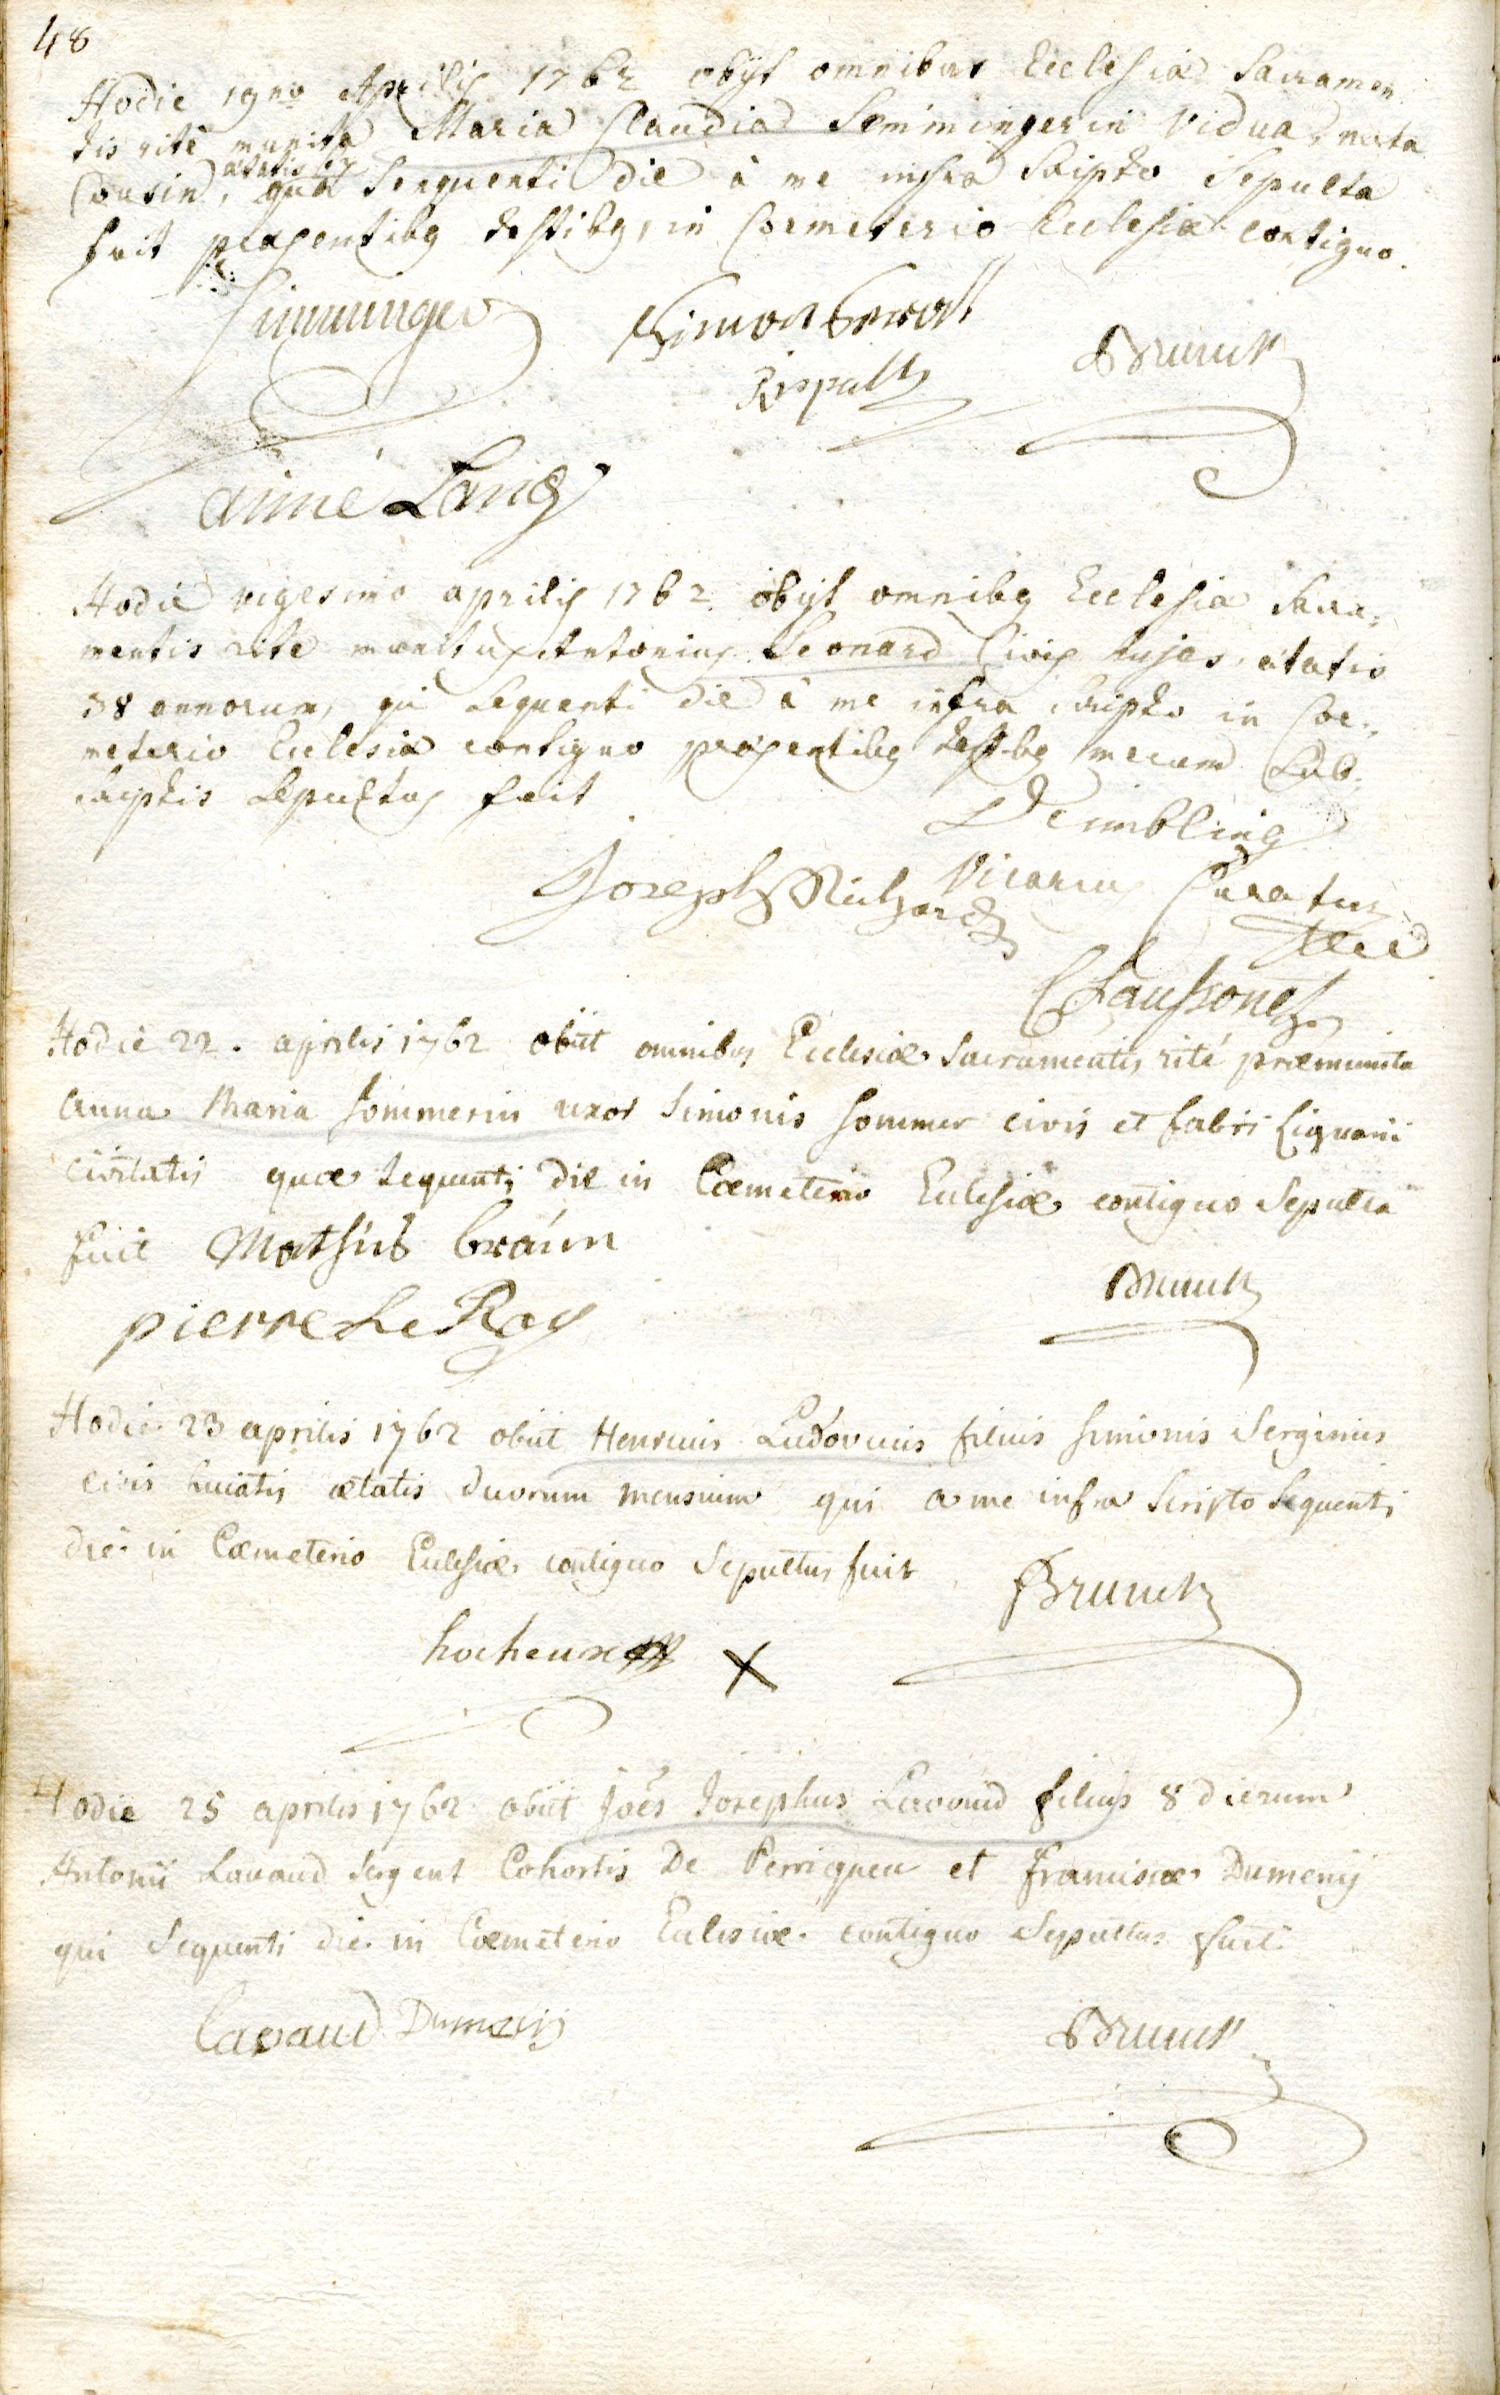 48
Hodie 19no Aprilis 1762 obijt omnibus Ecclesiæ Sacramen
tis ritè munita Maria Claudia Semmingerin Vidua, nata
Cousin, quæ Sequenti die à me infra Scripto Sepulta
ætatis
fuit præsentibg testibg, in Coemeterio Ecclesiæ contiguo.
Simon
Brunck
aimé Lang
Hodie vigesimo aprilis 1762. obijt omnibg Ecclesiæ Sacra,
mentis rite munitus Antonius Leonard Civis hujas, ætatis
38 annorum, qui Sequenti die à me infra scripto in Coe,
meterio Ecclesiæ contiguo præsentibg testibg mecum Sub,
scriptis Sepultus fuit
Deimbling
Vicarius Curatus
Joseph Richard
Chaussonet
Hodie 22. aprilis 1762 obiit omnibus Ecclesiæ Sacramentis rité præmunita
Anna Maria Sommerin uxor Simonis Sommer civis et fabri lignarii
civitatis quæ sequenti die in Cœmeterio Ecclesiæ contiguo Sepulta
fuit Mathis braun
Brunck
pierre Le Roy
Hodie 23 aprilis 1762 obiit Henricus Ludovicus filius Simonis Serginus
civis huiatis ætatis duorum mensium qui a me infra Scripto Sequenti
die in Cœmeterio Ecclesiæ contiguo Sepultus fuit
Brunck
X
Hodie 25 aprilis 1762 obiit Joës Josephus Lavaud filius 8 dierum
Antonii Lavaud Sergent Cohortis De Perrigueu et franciscæ Dumenij
qui Sequenti die in Cœmeterio Ecclesiæ contiguo Sepultus fuit
Lavaud Dumenij
Brunck